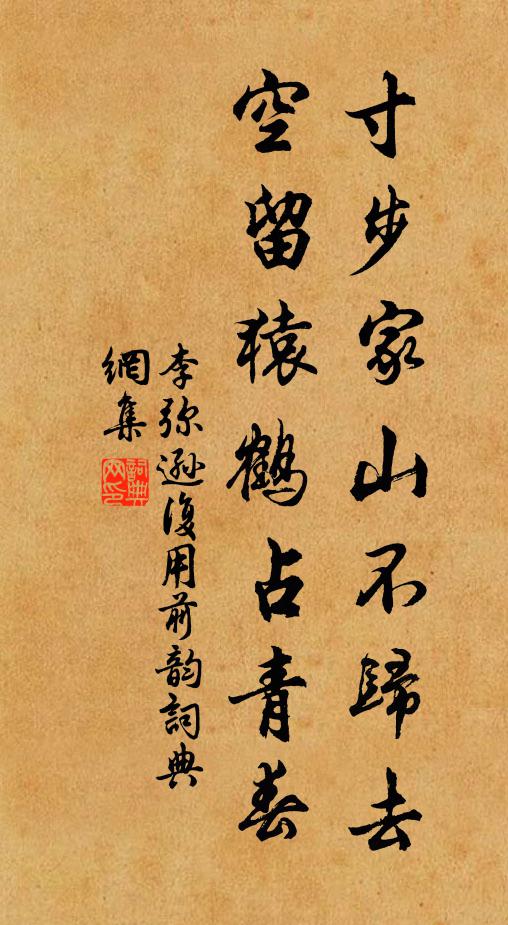 寸步家山不歸去
空留猿鶴占青春
李弥遜復用前韵詞典
網集
詞典
网印